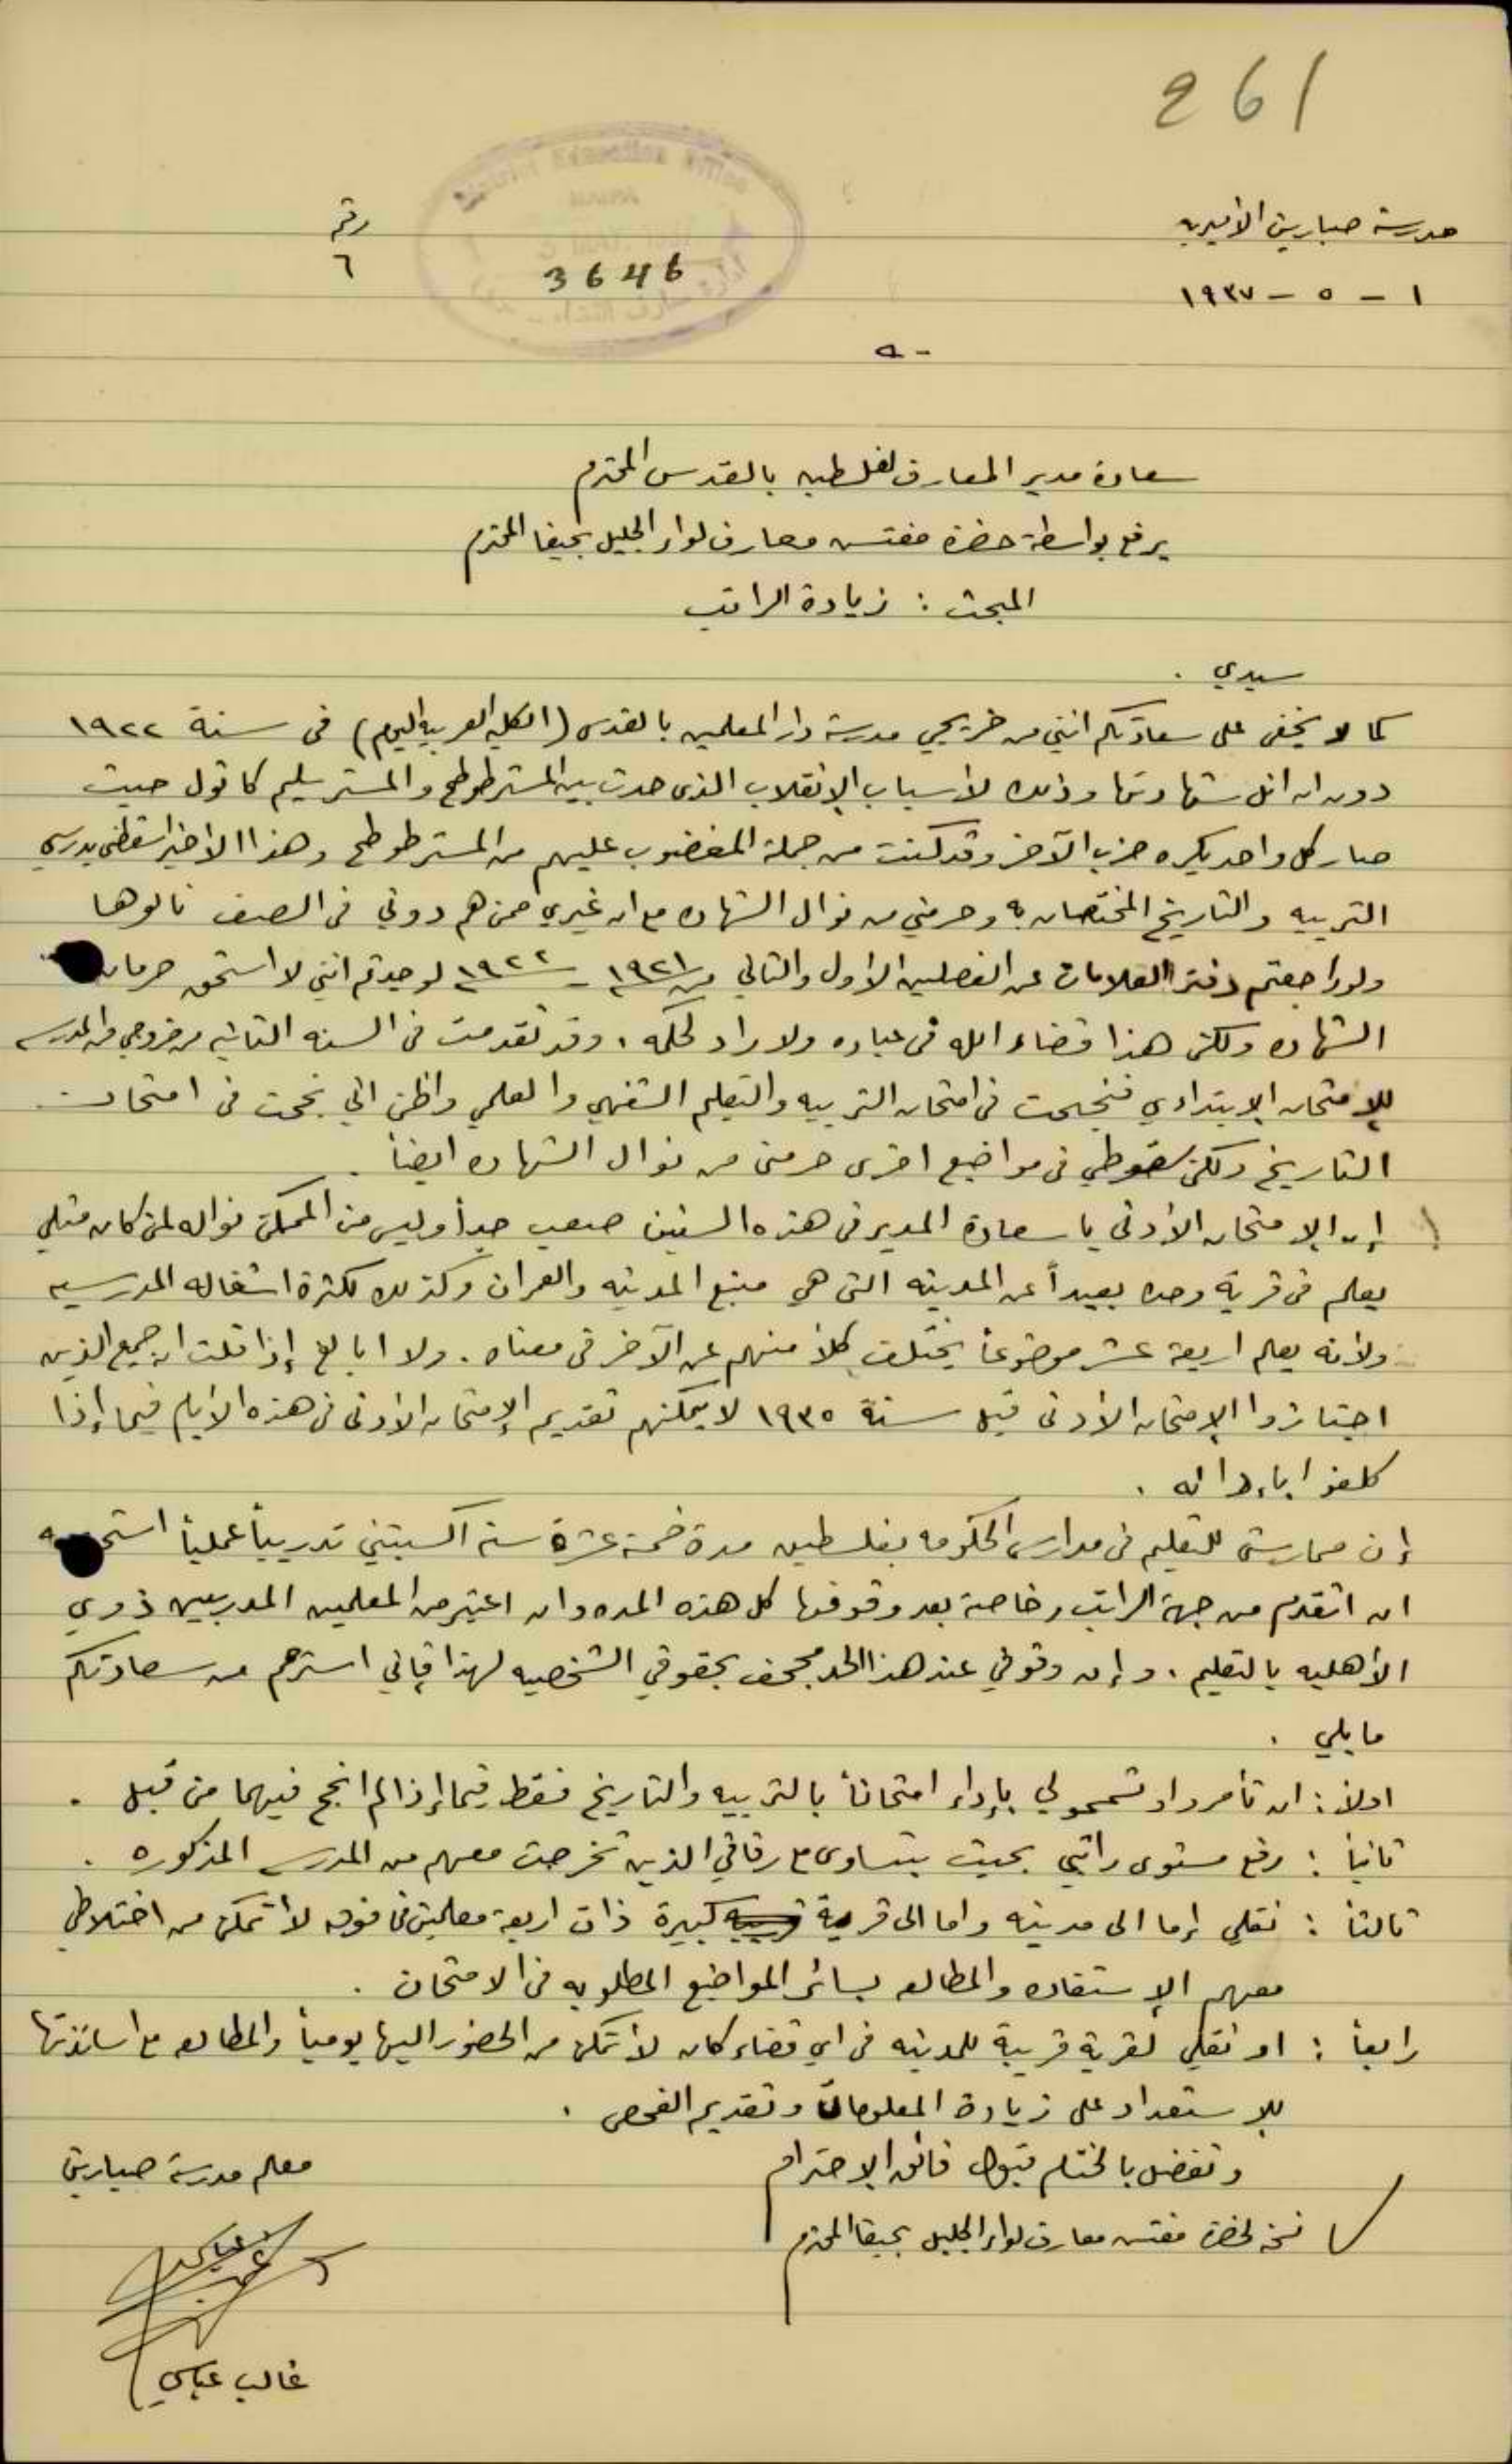 261
مدرسة صبارين الأميريه
رقم
٦
3646
١ - ٥ - ١٩٣٧
سعادة مدير المعارف لفلسطين بالقدس المحترم
يرفع بواسطة حضرة مفتش معارف لواء الجليل بحيفا المحترم
المبحث : زيادة الراتب
سيدي .
كما لا يخفى على سعادتكم انني من خريجي مدرسة دار المعلمين بالقدس (الكليه العربيه اليوم) في سنة ١٩٢٢
دون ان انل شهادتها وذلك لأسباب الإنقلاب الذي حدث بين المستر طوطح والمستر سليم كاتول حيث
صار كل واحد يكره حزب الآخر وقد كنت من جملة المغضوب عليهم من المستر طوطح وهذا الاخير اسقطني بدرسي
التربيه والتاريخ المختصان به وحرمني من نوال الشهاده مع ان غيري ممن هم دوني في الصف نالوها
ولو راجعتم دفتر العلامات عن الفصلين الاول والثاني من ١٩٢١ - ١٩٢٢ لوجدتم انني لا استحق حرمان
الشهاده ولكن هذا قضاء الله في عباده ولا راد لحكمه . وقد تقدمت في السنه الثانيه من خروجي من المدرسه
للإمتحان الإبتدائي فنجحت في امتحان التربيه والتعليم الشفهي والعلمي واظن اني نجحت في امتحان
التاريخ ولكن سقوطي في مواضيع اخرى حرمني من نوال الشهاده ايضاً .
إن الإمتحان الأدنى يا سعادة المدير في هذه السنين صعب جداً وليس من الممكن نواله لمن كان مثلي
يعلم في قرية وحده بعيداً عن المدينه التي هي منبع المدنيه والعمران وكذلك لكثرة اشغاله المدرسيه
ولأنه يعلم اربعة عشر موضوعاً يختلف كلاً منهم عن الآخر في معناه . ولا ابالغ إذا قلت ان جميع الذين
اجتازوا الإمتحان الأدنى قبل سنة ١٩٣٥ لا يمكنهم تقديم الإمتحان الأدنى في هذه الأيام فيما إذا
كلفوا بادائه .
إن ممارستي للتعليم في مدارس الحكومه بفلسطين مدة خمسة عشرة سنه اكسبتني تدريباً عملياً
ان اتقدم من جهة الراتب وخاصة بعد وقوفها كل هذه المده وان اعتبر من المعلمين المدربين ذوي
الأهليه بالتعليم . وإن وقوفي عند هذا الحد مجحف بحقوقي الشخصيه لهذا فإني استرحم من سعادتكم
ما يلي .
اولاً : ان تأمر واو تسمحو لي بإداء امتحاناً بالتربيه والتاريخ فقط فيما إذا لم انجح فيهما من قبل .
ثانياً : رفع مستوى راتبي بحيث يتساوى مع رفاقي الذين تخرجت معهم من المدرسه المذكوره .
ثالثاً : نقلي إما الى مدينه واما الى قرية كبيرة ذات اربعة معلمين فما فوق لأتمكن من اختلاطي
معهم الإستفاده والمطالعه بسائر المواضيع المطلوبه في الامتحان .
رابعاً : او نقلي لقرية قريبة للمدينه في اي قضاء كان لأتمكن من الحضور اليها يومياً والمطالعه مع اساتذتها
للإستعداد على زيادة المعلومات وتقديم الفحص .
وتفضل بالختام قبول فائق الإحترام
معلم مدرسة صبارين
نسخه لحضرة مفتش معارف لواء الجليل بحيفا المحترم
غالب عباسي